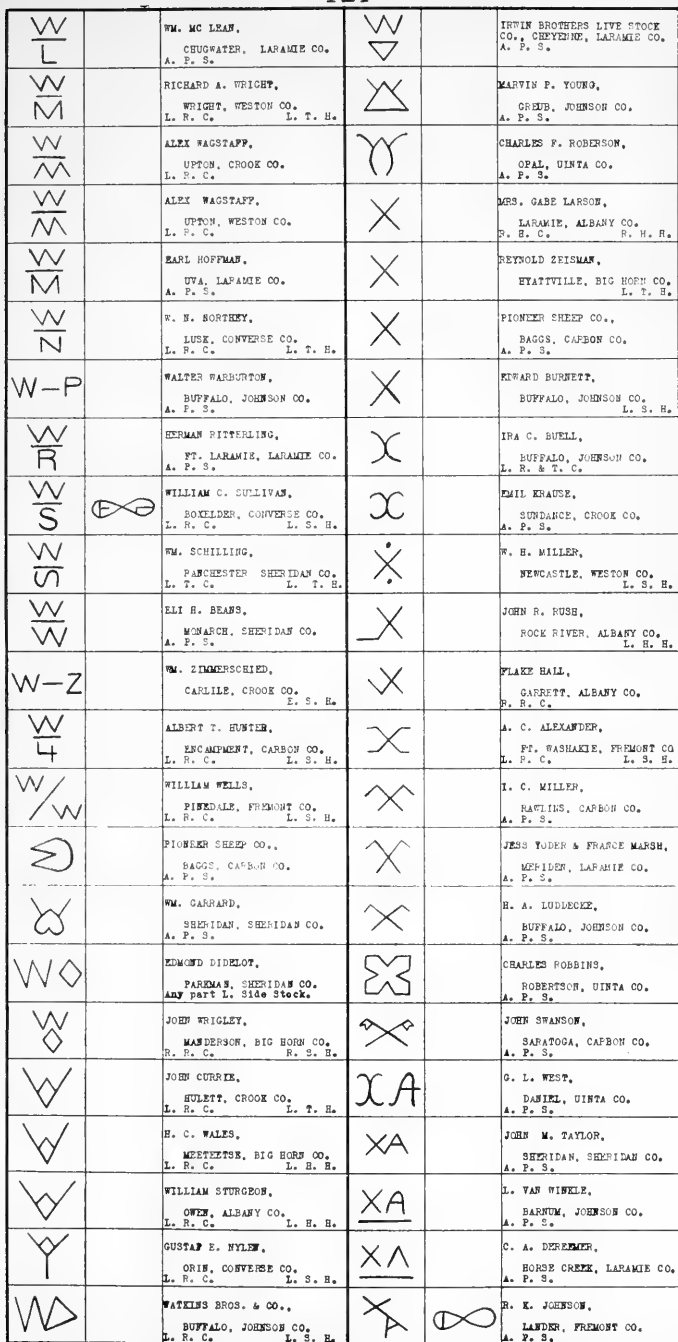 W
L
WM. MC LEAN,
CHUGWATER, LARAMIE CO.
A. P. S.
W
M
RICHARD A. WRIGHT,
WRIGHT, WESTON CO.
L. R. C. L. T. H.
W
M
ALEX WAGSTAFF,
UPTON, CROOK CO.
L. R. C.
W
M
ALEX WAGSTAFF,
UPTON, WESTON CO.
L. R. C.
W
M
EARL HOFFMAN,
UVA, LARAMIE CO.
A. P. S.
W
N
W. N. NORTHEY,
LUSK, CONVERSE CO.
L. R. C. L. T. H.
W-P
WALTER WARBURTON,
BUFFALO, JOHNSON CO.
A. P. S.
W
R
HERMAN RITTERLING,
FT. LARAMIE, LARAMIE CO.
A. P. S.
W
S
WILLIAM C. SULLIVAN,
BOXELDER, CONVERSE CO.
L. R. C. L. S. H.
W
S
WM. SCHILLING,
PANCHESTER SHERIDAN CO.
L. T. C. L. T. H.
W
W
ELI H. BEANS,
MONARCH, SHERIDAN CO.
A. P. S.
W-Z
WM. ZIMMERSCHIED,
CARLILE, CROOK CO.
E. S. H.
W
4
ALBERT T. HUNTER,
ENCAMPMENT, CARBON CO.
L. R. C. L. S. H.
W/W
WILLIAM WELLS,
PINEDALE, FREMONT CO.
L. R. C. L. S. H.
PIONEER SHEEP CO.,
BAGGS, CARBON CO.
A. P. S.
WM. GARRARD,
SHERIDAN, SHERIDAN CO.
A. P. S.
W
EDMOND DIDELOT,
PARKMAN, SHERIDAN CO.
Any part L. Side Stock.
W
JOHN WRIGLEY,
MANDERSON, BIG HORN CO.
R. R. C. R. S. H.
JOHN CURRIE,
HULETT, CROOK CO.
L. R. C. L. T. H.
H. C. WALES,
MEETEETSE, BIG HORN CO.
L. R. C. L. H. H.
WILLIAM STURGEON,
OWEN, ALBANY CO.
L. R. C. L. H. H.
GUSTAF E. NYLEN,
ORIN, CONVERSE CO.
L. R. C. L. S. H.
WATKINS BROS. & CO.,
BUFFALO, JOHNSON CO.
L. R. C. L. S. H.
W
IRWIN BROTHERS LIVE STOCK
CO., CHEYENNE, LARAMIE CO.
A. P. S.
MARVIN P. YOUNG,
GREUB, JOHNSON CO.
A. P. S.
CHARLES F. ROBERSON,
OPAL, UINTA CO.
A. P. S.
X
MRS. GABE LARSON,
LARAMIE, ALBANY CO.
R. H. C. R. H. H.
X
REYNOLD ZEISMAN,
HYATTVILLE, BIG HORN CO.
L. T. H.
X
PIONEER SHEEP CO.,
BAGGS, CARBON CO.
A. P. S.
X
EDWARD BURNETT,
BUFFALO, JOHNSON CO.
L. S. H.
X
IRA C. BUELL,
BUFFALO, JOHNSON CO.
L. R. & T. C.
X
EMIL KRAUSE,
SUNDANCE, CROOK CO.
A. P. S.
X
W. H. MILLER,
NEWCASTLE, WESTON CO.
L. S. H.
X
JOHN R. RUSH,
ROCK RIVER, ALBANY CO.
L. H. H.
X
FLAKE HALL,
GARRETT, ALBANY CO.
R. R. C.
X
A. C. ALEXANDER,
FT. WASHAKIE, FREMONT CO
L. R. C. L. S. H.
X
I. C. MILLER,
RAWLINS, CARBON CO.
A. P. S.
X
JESS YODER & FRANCE MARSH,
MERIDEN, LARAMIE CO.
A. P. S.
X
H. A. LUDDECKE,
BUFFALO, JOHNSON CO.
A. P. S.
X
CHARLES ROBBINS,
ROBERTSON, UINTA CO.
A. P. S.
JOHN SWANSON,
SARATOGA, CARBON CO.
A. P. S.
XA
G. L. WEST,
DANIEL, UINTA CO.
A. P. S.
XA
JOHN M. TAYLOR,
SHERIDAN, SHERIDAN CO.
A. P. S.
XA
L. VAN WINKLE,
BARNUM, JOHNSON CO.
A. P. S.
C. A. DEREEMER,
HORSE CREEK, LARAMIE CO.
A. P. S.
R. K. JOHNSON,
LANDER, FREMONT CO.
A. P. S.